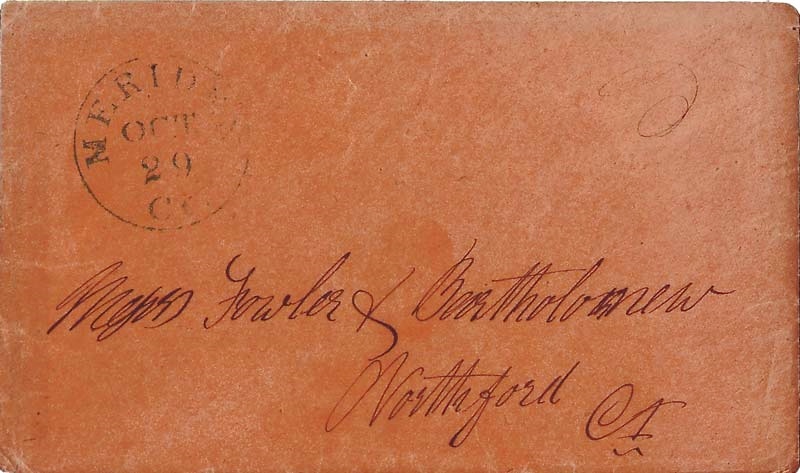 MERIDEN
OCT
29
CT.
Messrs Fowler & Bartholomew
Northford Ct